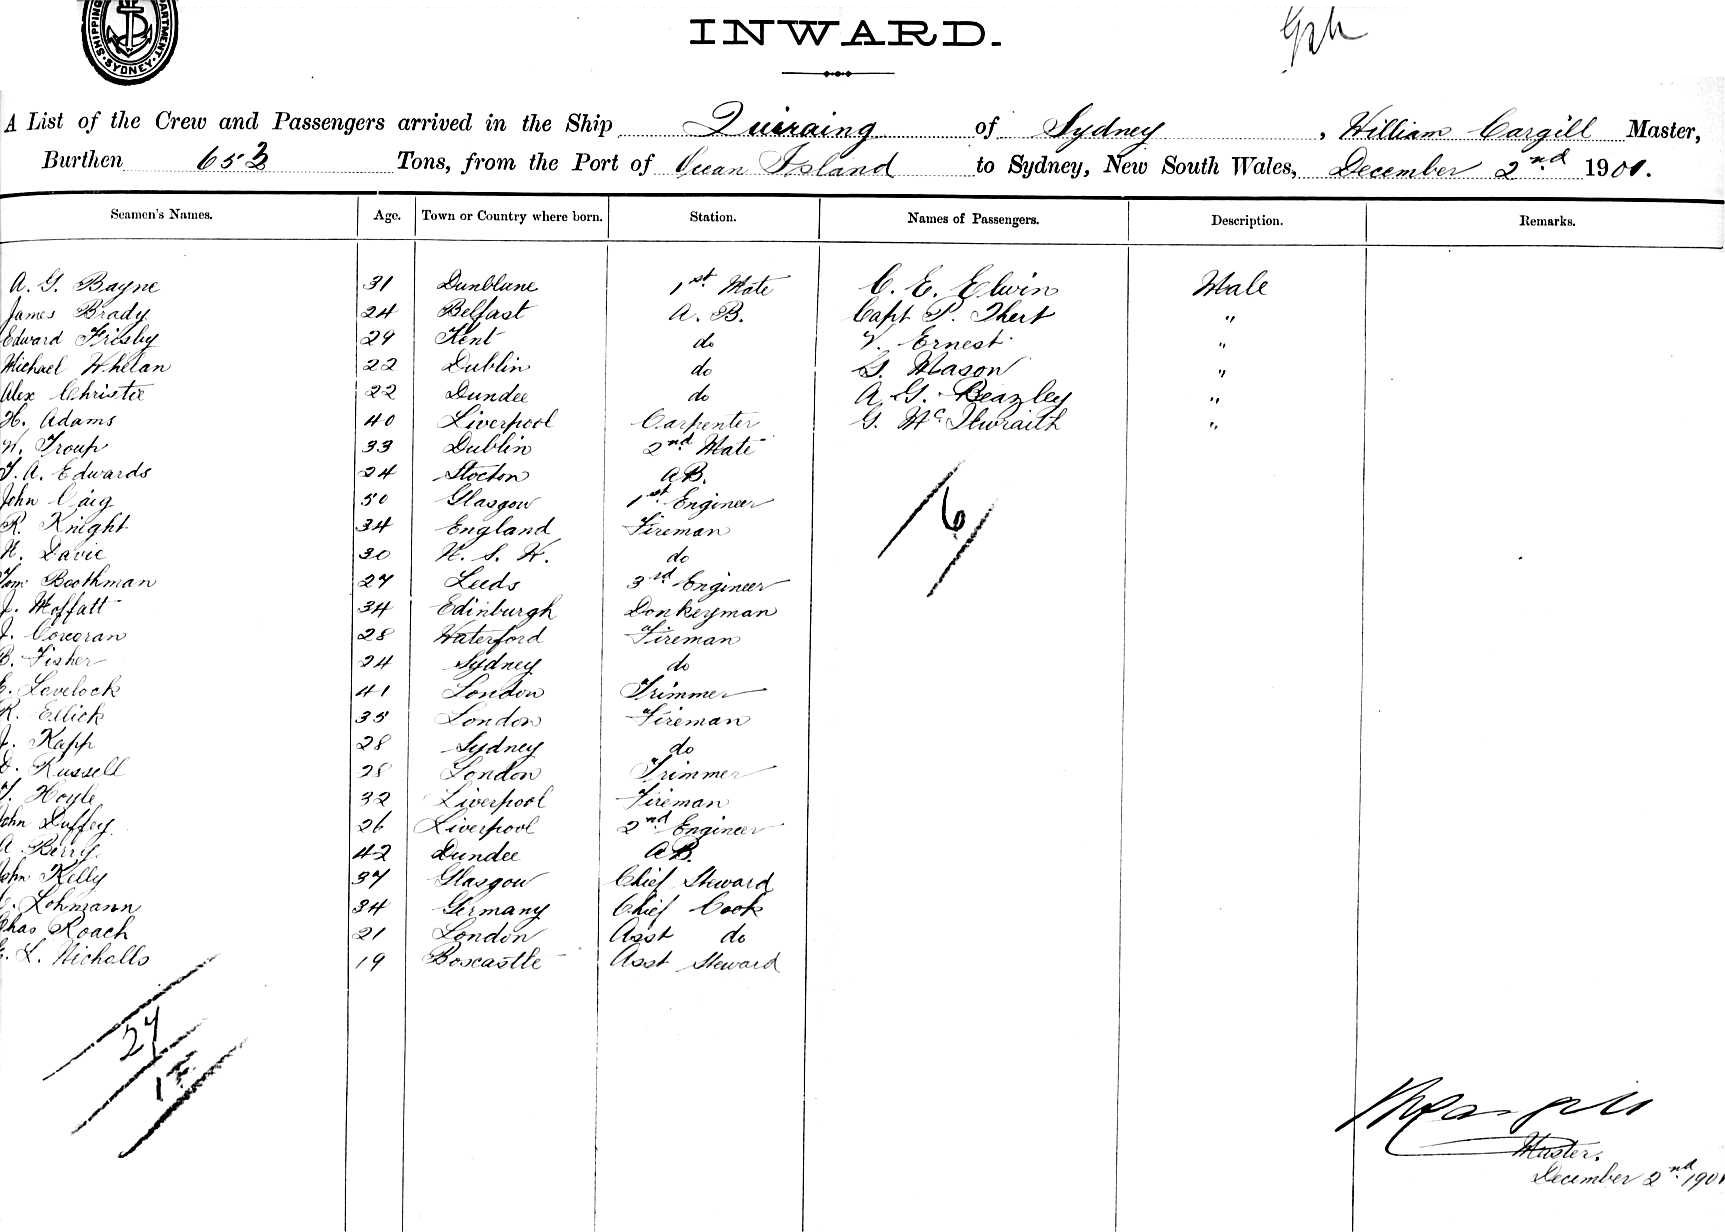 SHIPPING DEPARTMENT SYDNEY
INWARD.
A List of the Crew and Passengers arrived in the Ship Quiraing of Sydney, William Cargill Master,
Burthen 653 Tons, from the Port of Ocean Island to Sydney, New South Wales, December 2nd 1901.
Seamen's Names. Age. Town or Country where born. Station. Names of Passengers. Description. Remarks.
A. G. Bayne 31 Dunblane 1st Mate C. E. Elwin Male
James Brady 24 Belfast A. B. Capt P. Thert "
Edward Frisby 29 Kent do V. Ernest "
Michael Whelan 22 Dublin do G. Mason "
Alex Christie 22 Dundee do A. G. Beazley "
H. Adams 40 Liverpool Carpenter G. McIlwraith "
W. Troup 33 Dublin 2nd Mate
T. A. Edwards 24 Stocton A.B.
John Caig 50 Glasgow 1st Engineer
R. Knight 34 England Fireman
W. Davie 30 N. S. W. do
Tom Boothman 27 Leeds 3rd Engineer
J. Moffatt 34 Edinburgh Donkeyman
J. Corcoran 28 Waterford Fireman
B. Fisher 24 Sydney do
E. Lovelock 41 London Trimmer
R. Ellick 35 London Fireman
J. Kapp 28 Sydney do
Russell 28 London Trimmer
T. Hoyle 32 Liverpool Fireman
John Duffey 26 Liverpool 2nd Engineer
A. Berry 42 Dundee A.B.
John Kelly 37 Glasgow Chief Steward
Lohmann 34 Germany Chief Cook
Chas Roach 21 London Asst do
L. Nicholls 19 Boscastle Asst Steward
6
27
W Cargill
Master.
December 2nd 1901